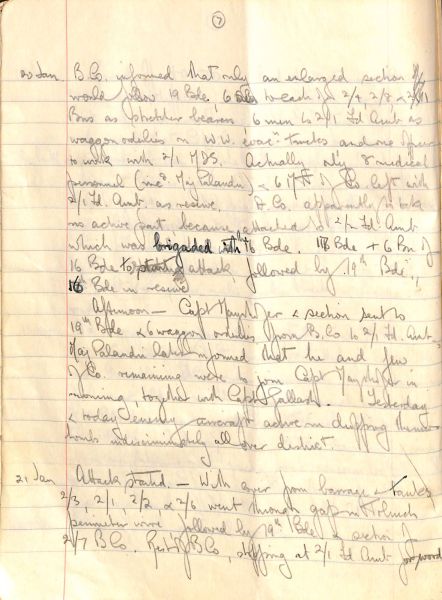 7
20 Jan B. Co. informed that only an enlarged section
would follow 19 Bde, 6 to each for 2/4, 2/8, & 2/11
Bns as stretcher bearers 6 men to 2/1 Fd Amb as
waggon orderlies on W.W. evac. trucks and one officer
to work with 2/1 MDS. Actually only 8 medical
personnel (incl. Maj Palandri) & 6 of Co. left with
2/1 Fd. Amb. as reserve. Co. apparently to take
no active part because attached to 2/2 Fd Amb
which was brigaded with 16 Bde. Bde + 6 Bn of
16 Bde to attack, followed by 19th Bde,
16 Bde in reserve
Afternoon — Capt & section sent to
19th Bde & 6 waggon orderlies from B. Co to 2/1 Fd. Amb.
Maj Palandri later informed that he and few
of Co. remaining were to join Capt in
morning, together with Capt Gallash. Yesterday
& today enemy aircraft active in dropping
bombs indiscriminately all over district.
21 Jan Attack started — With cover from barrage & tanks
2/3, 2/1, 2/2 & 2/6 went through gap in Tobruch
perimeter wire followed by 19th Bde & section of
2/7 B Co. Rest of B Co, stopping at 2/1 Fd Amb. for word